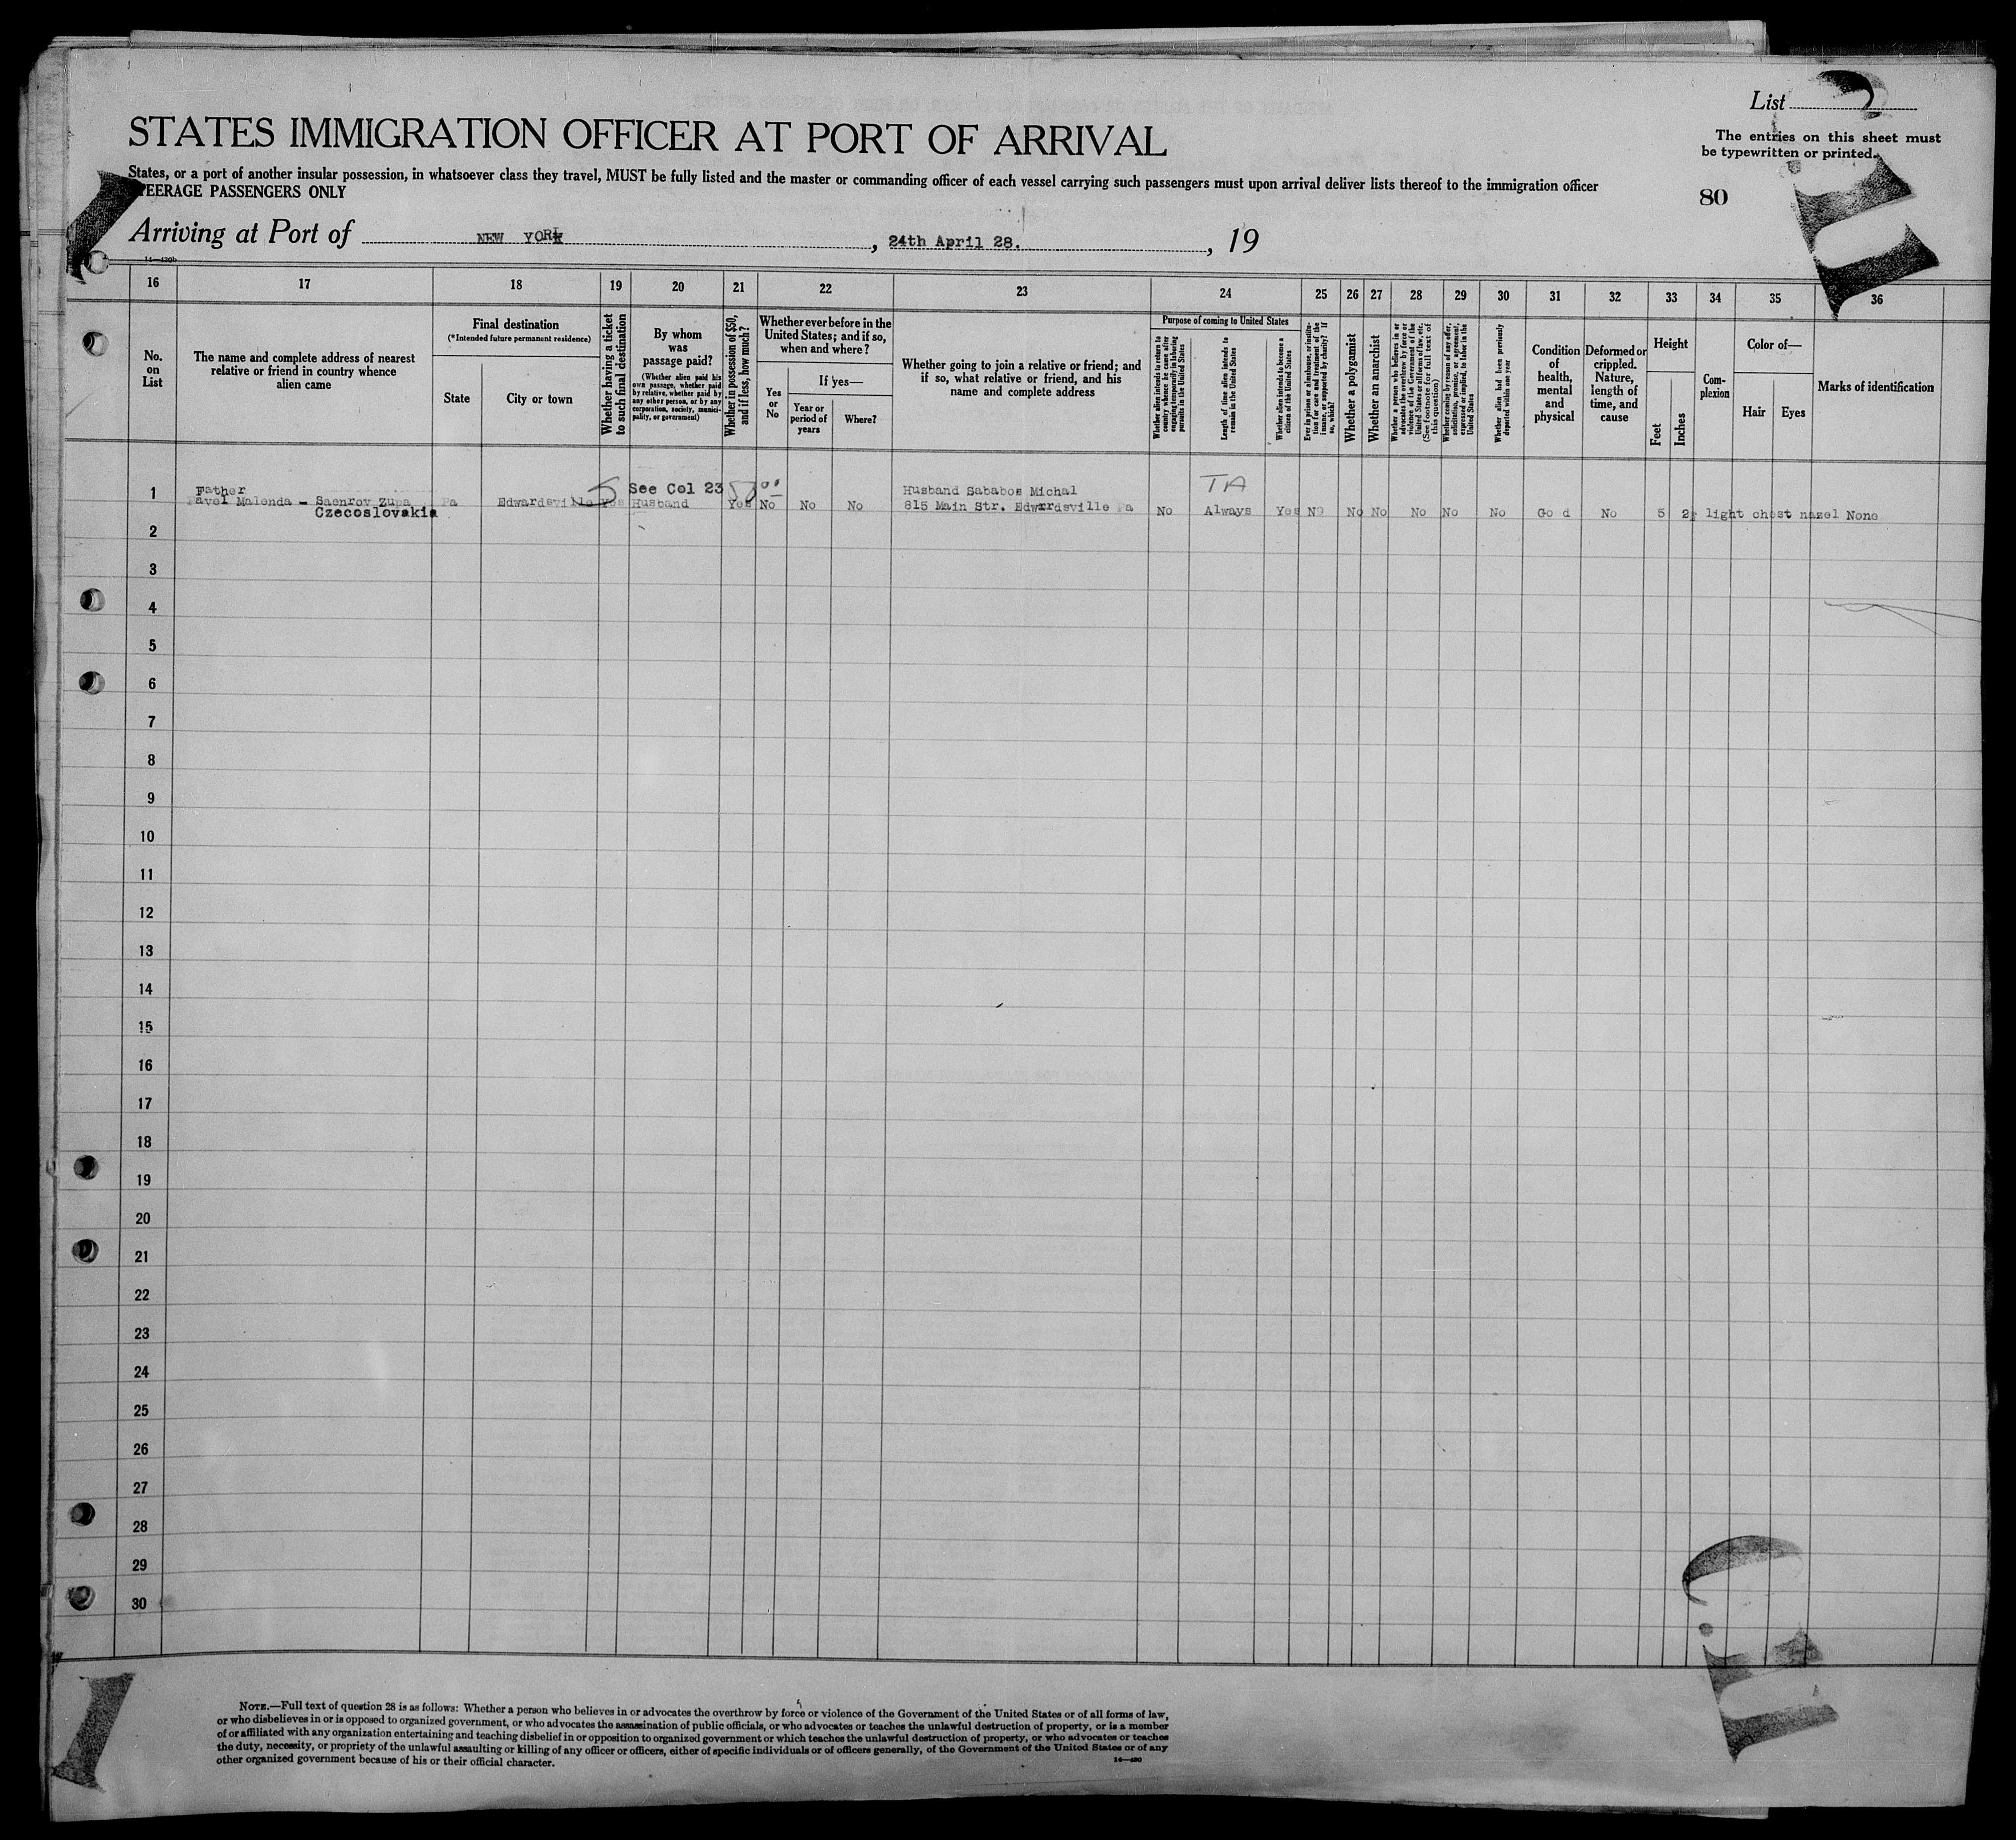 List
STATES IMMIGRATION OFFICER AT PORT OF ARRIVAL
The entries on this sheet must
be typewritten or printed.
States, or a port of another insular possession, in whatsoever class they travel, MUST be fully listed and the master or commanding officer of each vessel carrying such passengers must upon arrival deliver lists thereof to the immigration officer
STEERAGE PASSENGERS ONLY
80
Arriving at Port of NEW YORK, 24th April 28., 19
14—430b
16 17 18 19 20 21 22 23 24 25 26 27 28 29 30 31 32 33 34 35 36
No. on List
The name and complete address of nearest relative or friend in country whence alien came
Final destination
(*Intended future permanent residence)
State
City or town
Whether having a ticket to such final destination
By whom was passage paid?
(Whether alien paid his own passage, whether paid by relative, whether paid by any other person, or by any corporation, society, municipality, or government)
Whether in possession of $50, and if less, how much?
Whether ever before in the United States; and if so, when and where?
Yes or No
If yes—
Year or period of years
Where?
Whether going to join a relative or friend; and if so, what relative or friend, and his name and complete address
Purpose of coming to United States
Whether alien intends to return to country whence he came after engaging temporarily in laboring pursuits in the United States
Length of time alien intends to remain in the United States
Whether alien intends to become a citizen of the United States
Ever in prison or almshouse, or institution for care and treatment of the insane, or supported by charity? If so, which?
Whether a polygamist
Whether an anarchist
Whether a person who believes in or advocates the overthrow by force or violence of the Government of the United States or all forms of law, etc. (See footnote for full text of this question)
Whether coming by reason of any offer, solicitation, promise, or agreement, expressed or implied, to labor in the United States
Whether alien had been previously deported within one year
Condition of health, mental and physical
Deformed or crippled. Nature, length of time, and cause
Height
Feet
Inches
Complexion
Color of—
Hair
Eyes
Marks of identification
Father See Col 23 50 00 Husband Sababos Michal TA
1 Pavel Malenda - Saenrov Zupa Pa Edwardsville Yes Husband Yes No No No 815 Main Str. Edwardsville Pa No Always Yes No No No No No No Go d No 5 2 light chest hazel None
Czecoslovakia
2
3
4
5
6
7
8
9
10
11
12
13
14
15
16
17
18
19
20
21
22
23
24
25
26
27
28
29
30
NOTE.—Full text of question 28 is as follows: Whether a person who believes in or advocates the overthrow by force or violence of the Government of the United States or of all forms of law,
or who disbelieves in or is opposed to organized government, or who advocates the assassination of public officials, or who advocates or teaches the unlawful destruction of property, or is a member
of or affiliated with any organization entertaining and teaching disbelief in or opposition to organized government or which teaches the unlawful destruction of property, or who advocates or teaches
the duty, necessity, or propriety of the unlawful assaulting or killing of any officer or officers, either of specific individuals or of officers generally, of the Government of the United States or of any
other organized government because of his or their official character.
14—430